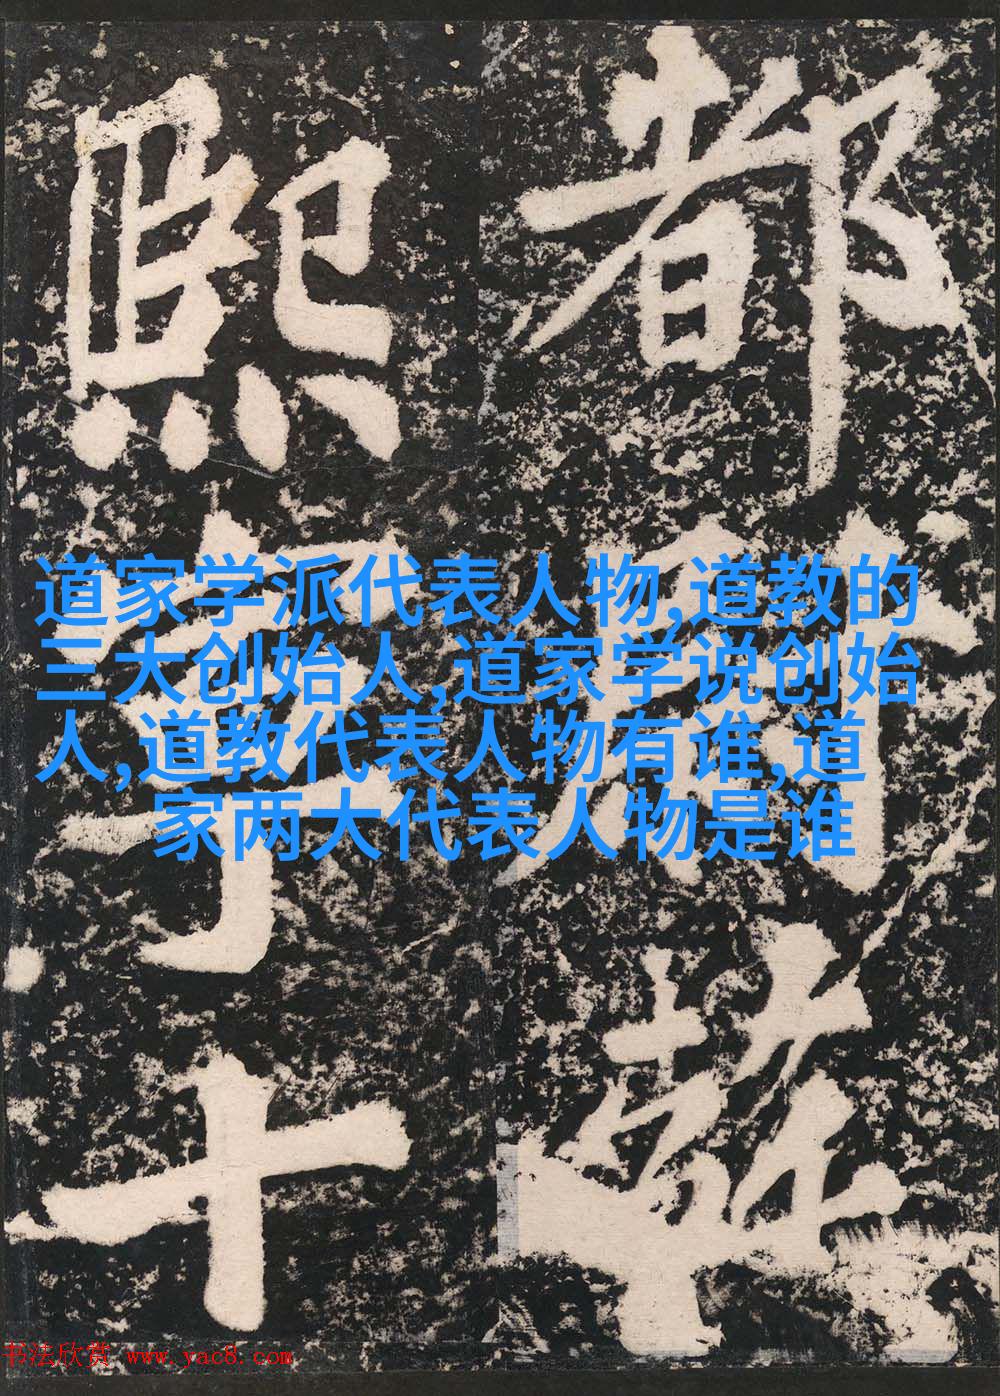 都
熙寧十
道家学派代表人物,道教的
三大创始人,道家学说创始
人,道教代表人物有谁,道
家两大代表人物是谁
书法欣赏 www.yac8.com